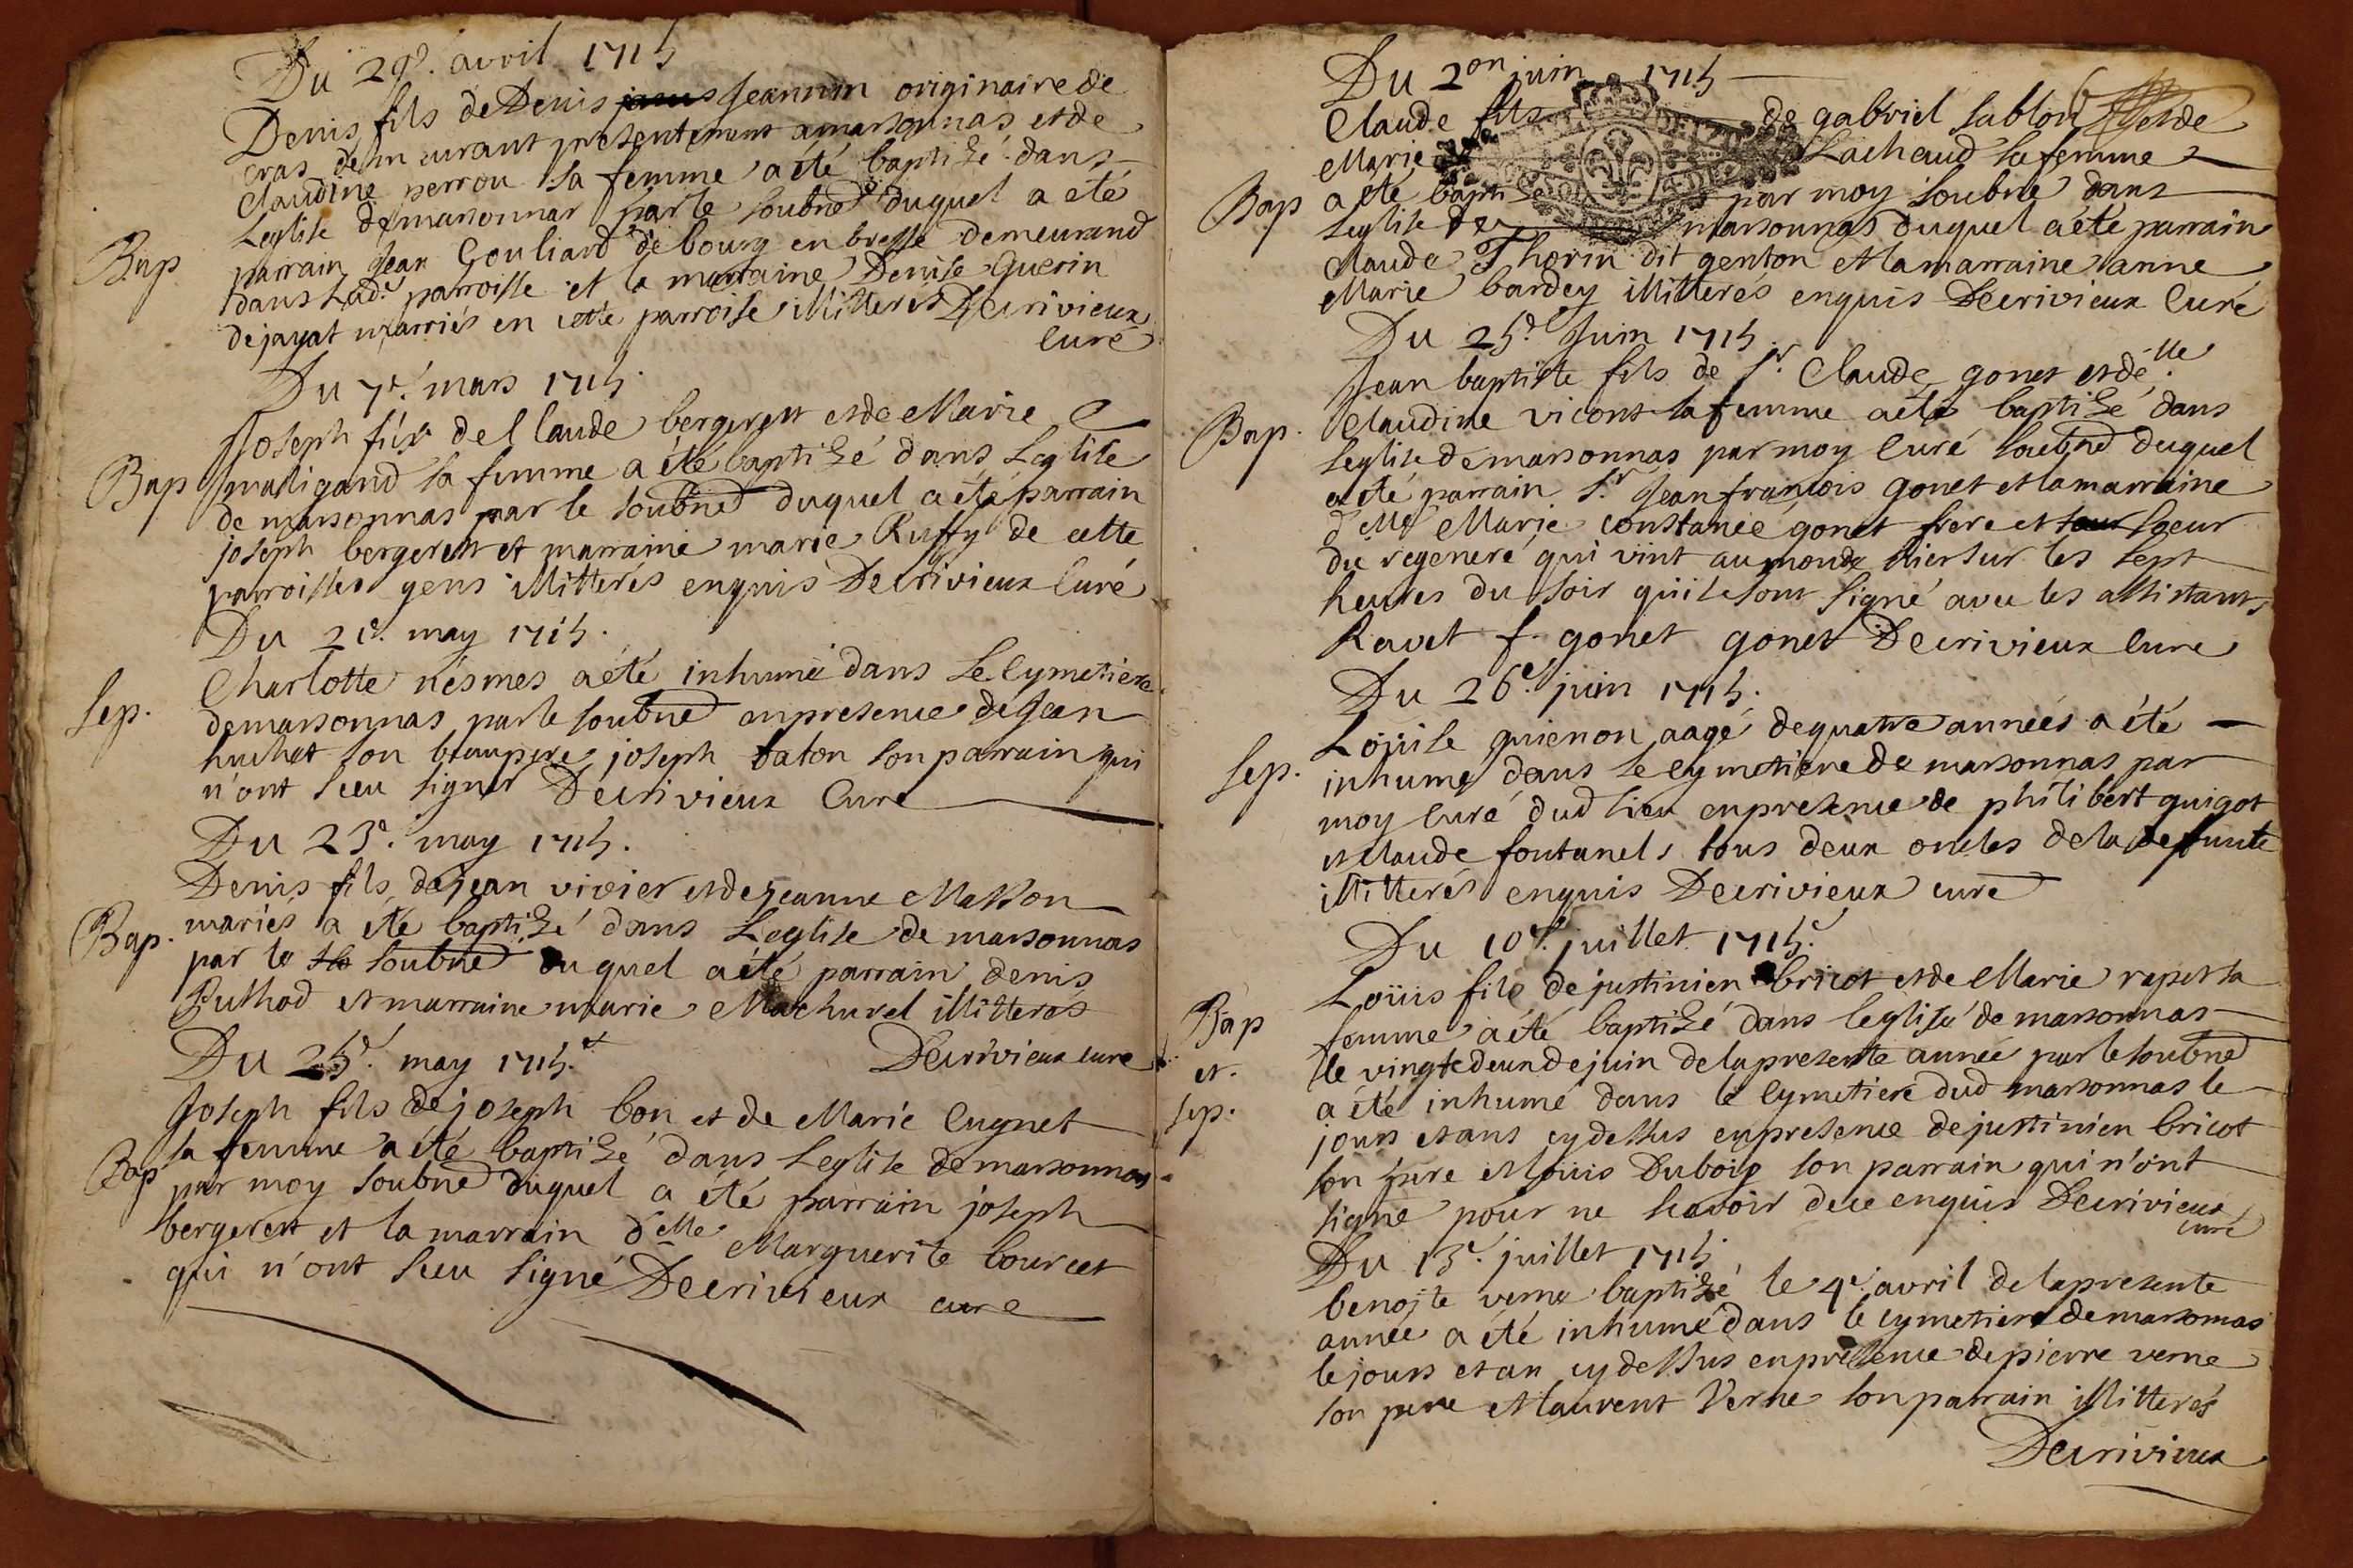 Du 29e. avril 1715
Denis fils de Denis Jeannin originaire de
cras demeurant presentement a marsonnas et de
Claudine perrou sa femme a été baptizé dans
Leglise de marsonnas par le soubné duquel a eté
Bap
parrain Jean Gouliard de bourg en bresse demeurand
dans lad.e parroisse et la marraine Denise Guerin
de jayat marriés en cette parroise illitterés Decrivieux
curé
Du 7e. mars 1715.
Joseph fils de Claude bergerett et de Marie
Bap
maligand sa femme a été baptizé dans Leglise
de marsonnas par le soubné duquel a été parrain
joseph bergerett et marraine marie Ruffy de cette
parroisses gens illitterés enquis Decrivieux curé
Du 21e. may 1715.
Charlotte nésmes a été inhumé dans Le Cymetiere
Sep.
de marsonnas par le soubné en presence de Jean
huchet son beaupere joseph baton son parrain qui
n'ont sceu signer Decrivieux Curé
Du 23e. may 1715.
Denis fils de jean vivier et de jeanne Masson
Bap.
mariés a été baptizé dans Leglise de marsonnas
par le soubné duquel a été parrain denis
Puthod et marraine marie Machurel illitterés
Du 25e. may 1715.
Decrivieux curé
Joseph fils de joseph bon et de Marie Cugnet
Bap
sa femme a été baptizé dans Leglise de marsonnas
par moy soubné duquel a été parrain joseph
bergerett et la marrain delle Marguerite bourcet
qui n'ont sceu signé Decrivieux curé
Du 2on juin 1715
Claude fils de gabriel sublon et de
Marie Lachaud sa femme
Bap
a été baptizé par moy soubné dans
Leglise de marsonnas duquel a été parrain
Claude Thorin dit genton et la marraine anne
Marie bardey illitterés enquis Decrivieux Curé
Du 25e Juin 1715.
Jean baptiste fils de Sr. Claude gonet et de lle
Bap.
Claudine vicont sa femme a été baptizé dans
Leglise de marsonnas par moy Curé soubné duquel
a été parrain Sr Jean françois gonet et la marraine
delle Marie constancé gonet frere et soeur
du regeneré qui vint au monde hier sur les sept
heures du soir qui se sont signé avec les assistants
Ravet f. gonet gonet Decrivieux Cure
Du 26e. juin 1715.
Louise guienon aagé de quatre années a été
Sep.
inhumé dans le cymetiere de marsonnas par
moy Curé dud lieu en presence de philibert guigot
et claude fontanel, tous deux oncles de la defunte
illitterés enquis Decrivieux curé
Du 10e. juillet 1715.
Louis fils de justinien bricot et de Marie rapet sa
Bap
femme a été baptizé dans leglise de marsonnas
et.
le vingtedeux de juin de la presente année par le soubné
Sep.
a été inhumé dans le Cymetiere dud marsonnas le
jours et ans cy dessus en presence de justinien bricot
son pere et louis Dubois son parrain qui n'ont
signé pour ne scavoir de ce enquis Decrivieux
curé
Du 13e. juillet 1715.
benoite verne baptizé le 4e. avril de la presente
année a été inhumé dans le cymetiere de marsonnas
le jours et an cy dessus en presence de pierre verne
son pere et laurent Verne son parrain illitterés
Decrivieux